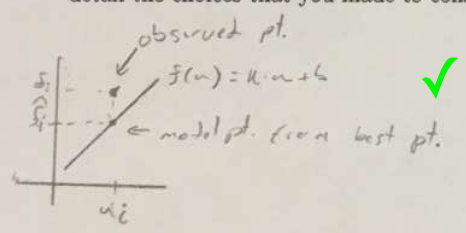 detail the choices that you made to con
observed pt.
f(u) = k·u + b
ŷi
← model pt. from best pt.
ui